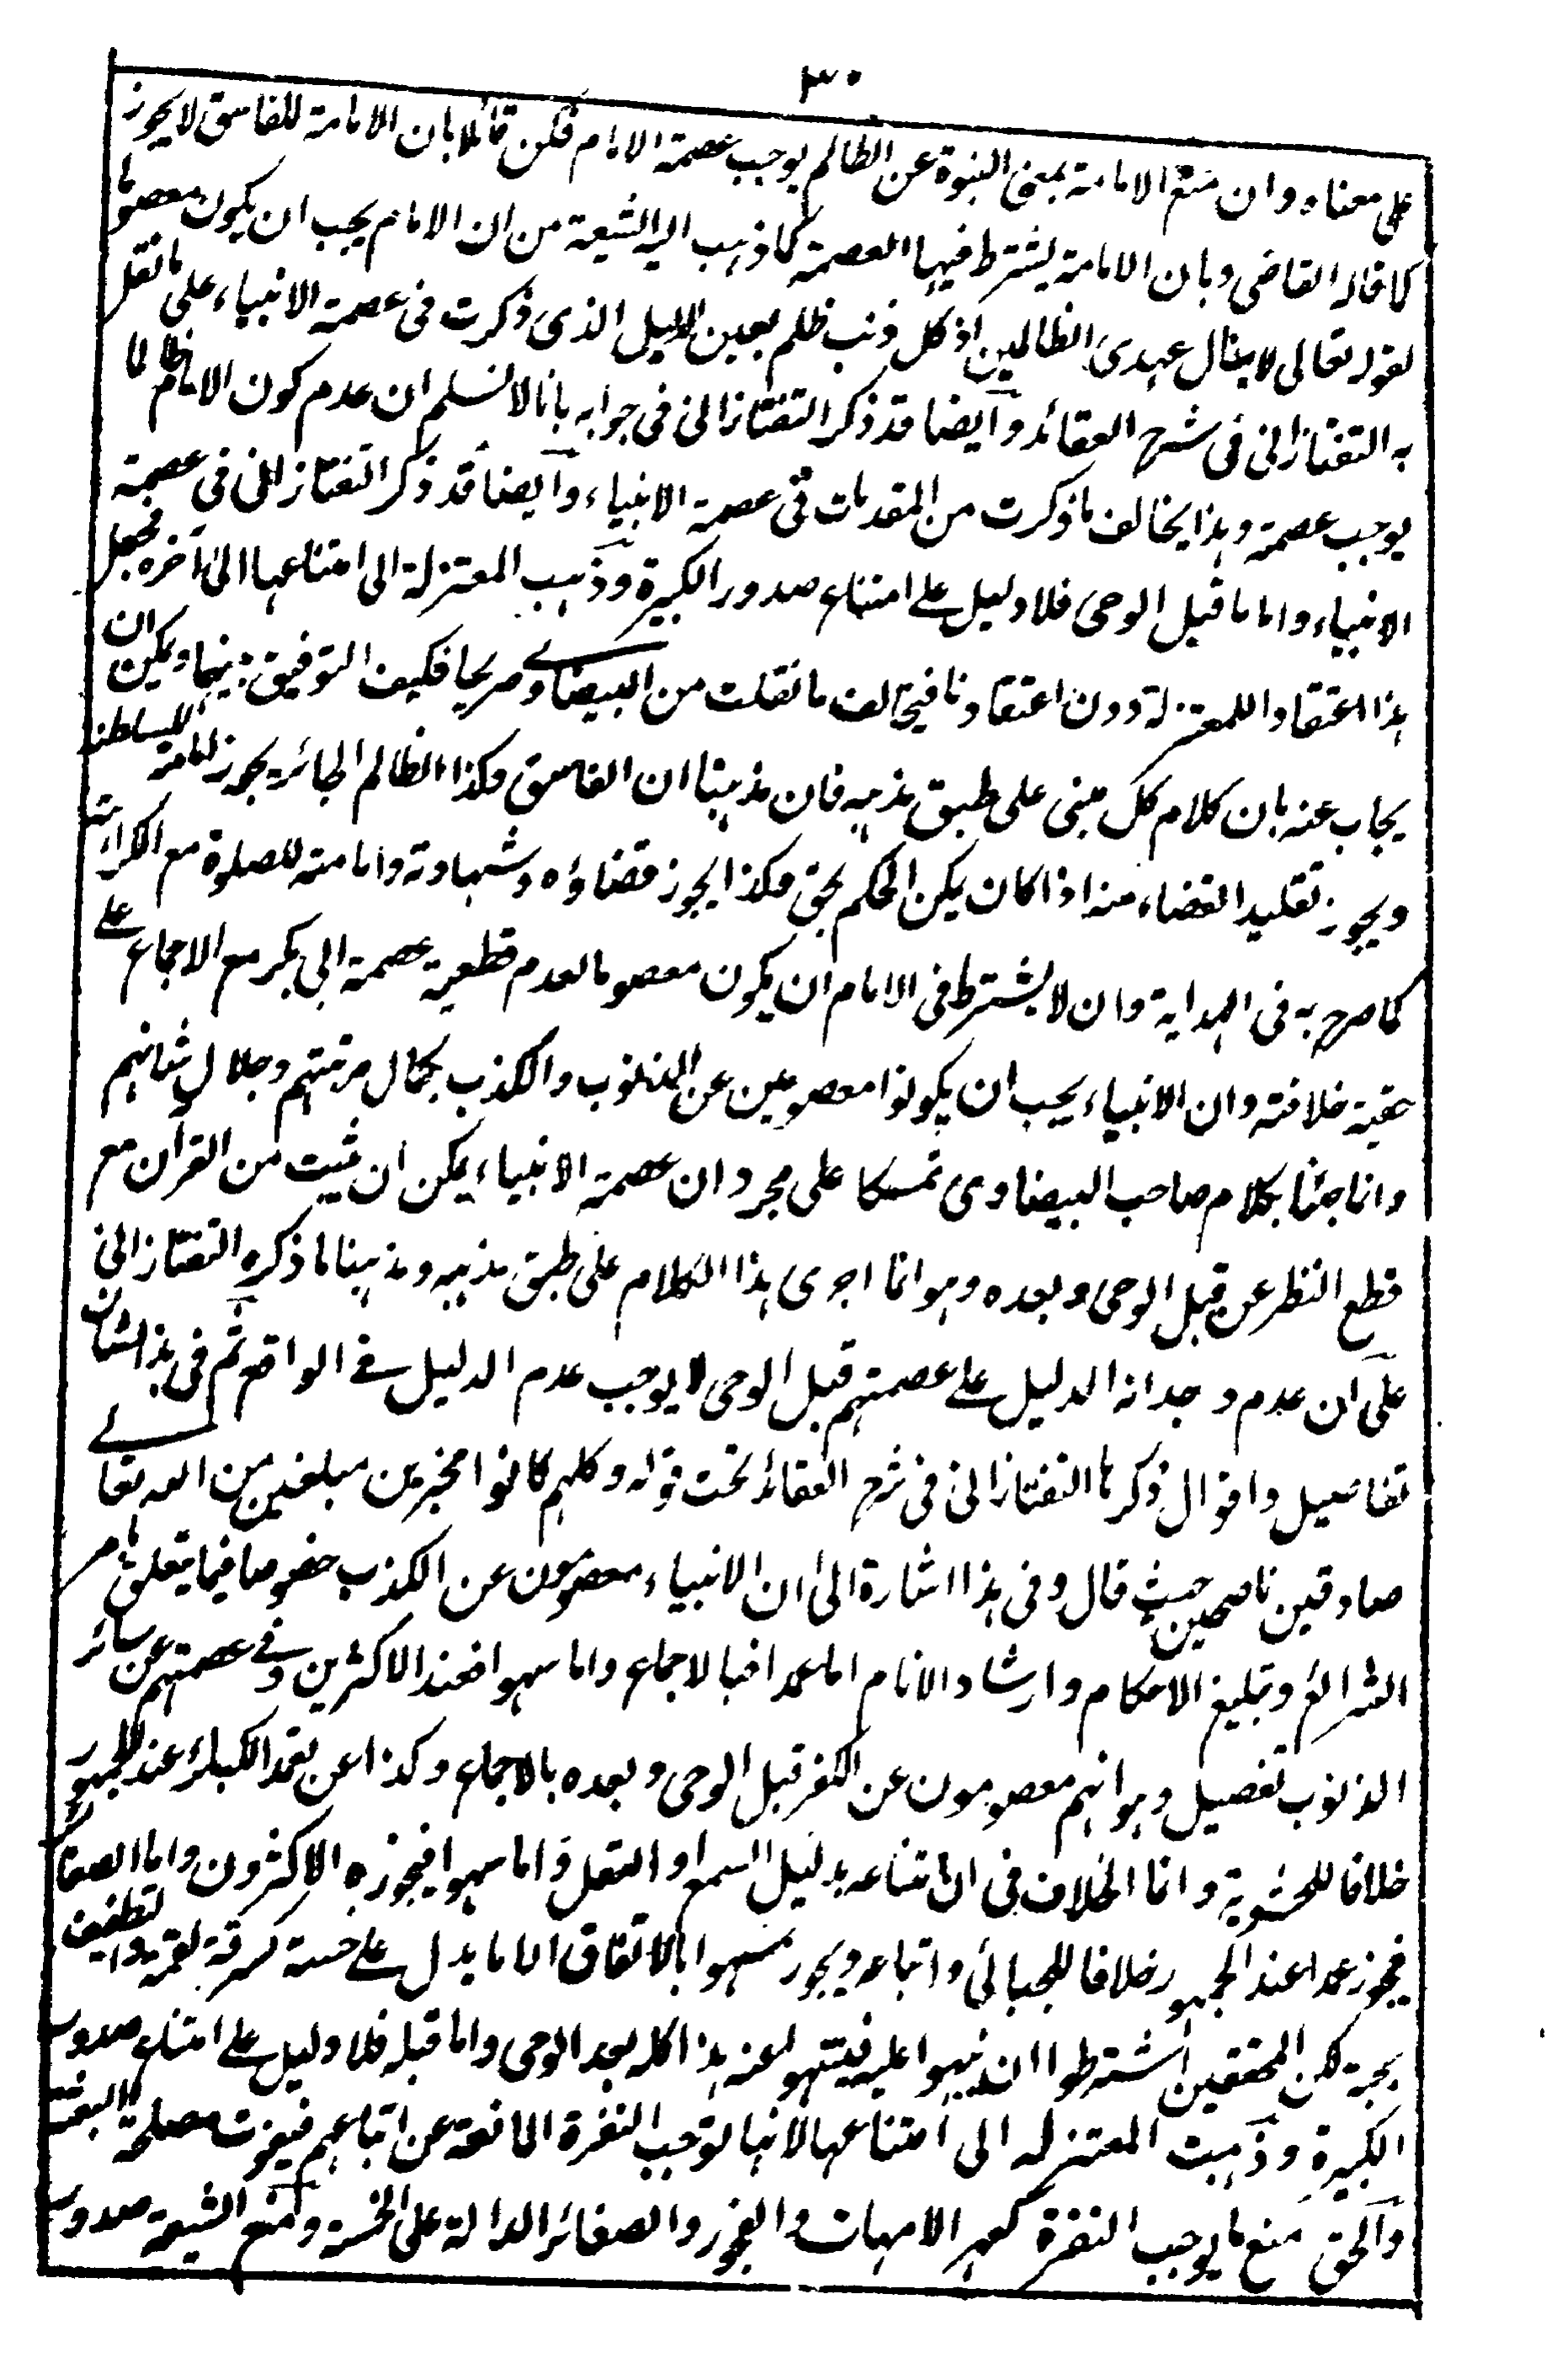 ٣٠
على معناه وان منع الامامة بمعنى النبوة عن الظالم يوجب عصمة الامام فكن قائلا بان الامامة للفاسق لا يجوز
كما قاله القاضى وبان الامامة يشترط فيها العصمة كما ذهب اليه الشيعة من ان الامام يجب ان يكون معصوما
لقوله تعالى لا ينال عهدى الظالمين اذ كل ذنب ظلم بعين الدليل الذى ذكرت فى عصمة الانبياء على ما نقل
به التفتازانى فى شرح العقائد وآيضا قد ذكر التفتازانى فى جوابه بانا لا نسلم ان عدم كون الامام ظالما
يوجب عصمة وهذا يخالف ما ذكرت من المقدمات فى عصمة الانبياء وآيضا قد ذكر التفتازانى فى عصمة
الانبياء واما ما قبل الوحى فلا دليل على امتناع صدور الكبيرة وذهب المعتزلة الى امتناعها الى آخره فجعل
هذا اعتقادا للمعتزلة دون اعتقادنا فيخالف ما نقلت من البيضاوى صريحا فكيف التوفيق بينهما ويمكن ان
يجاب عنه بان كلام كل مبنى على طبق مذهبه فان مذهبنا ان الفاسق وكذا الظالم الجائر يجوز امامته للسلطنة
ويجوز تقليد القضاء منه اذا كان يمكن الحكم بحق وكذا يجوز قضاؤه وشهادته وامامته للصلوة مع الكراهة
كما صرح به فى الهداية وان لا يشترط فى الامام ان يكون معصوما لعدم قطعية عصمة ابى بكر مع الاجماع على
حقية خلافته وان الانبياء يجب ان يكونوا معصومين عن الذنوب والكذب بكمال مرتبتهم وجلال شانهم
وانا جئنا بكلام صاحب البيضاوى تمسكا على مجرد ان عصمة الانبياء يمكن ان يثبت من القرآن مع
قطع النظر عن قبل الوحى وبعده وهو انما اجرى هذا الكلام على طبق مذهبه ومذهبنا ما ذكره التفتازانى
على ان عدم وجدانه الدليل على عصمتهم قبل الوحى لا يوجب عدم الدليل فى الواقع ثم فى هذا الشان
تفاصيل واقوال ذكرها التفتازانى فى شرح العقائد تحت قوله وكلهم كانوا مخبرين مبلغين من الله تعالى
صادقين ناصحين حيث قال وفى هذا اشارة الى ان الانبياء معصومون عن الكذب خصوصا فيما يتعلق بامر
الشرائع وتبليغ الاحكام وارشاد الانام اما عمدا فبالاجماع واما سهوا فعند الاكثرين وفى عصمتهم عن سائر
الذنوب تفصيل وهو انهم معصومون عن الكفر قبل الوحى وبعده بالاجماع وكذا عن تعمد الكبائر عند الجمهور
خلافا للحشوية وانما الخلاف فى ان امتناعه بدليل السمع او العقل واما سهوا فيجوزه الاكثرون واما الصغائر
فيجوز عمدا عند الجمهور خلافا للجبائى واتباعه ويجوز سهوا بالاتفاق الا ما يدل على خسة كسرقة لقمة والتطفيف
بحبة لكن المحققين اشترطوا ان ينبهوا عليه فينتهوا عنه هذا كله بعد الوحى واما قبله فلا دليل على امتناع صدور
الكبيرة وذهبت المعتزلة الى امتناعها لانها توجب النفرة المانعة عن اتباعهم فيفوت مصلحة البعثة
والحق منع ما يوجب النفرة كعهر الامهات والفجور والصغائر الدالة على الخسة ومنع الشيعة صدور